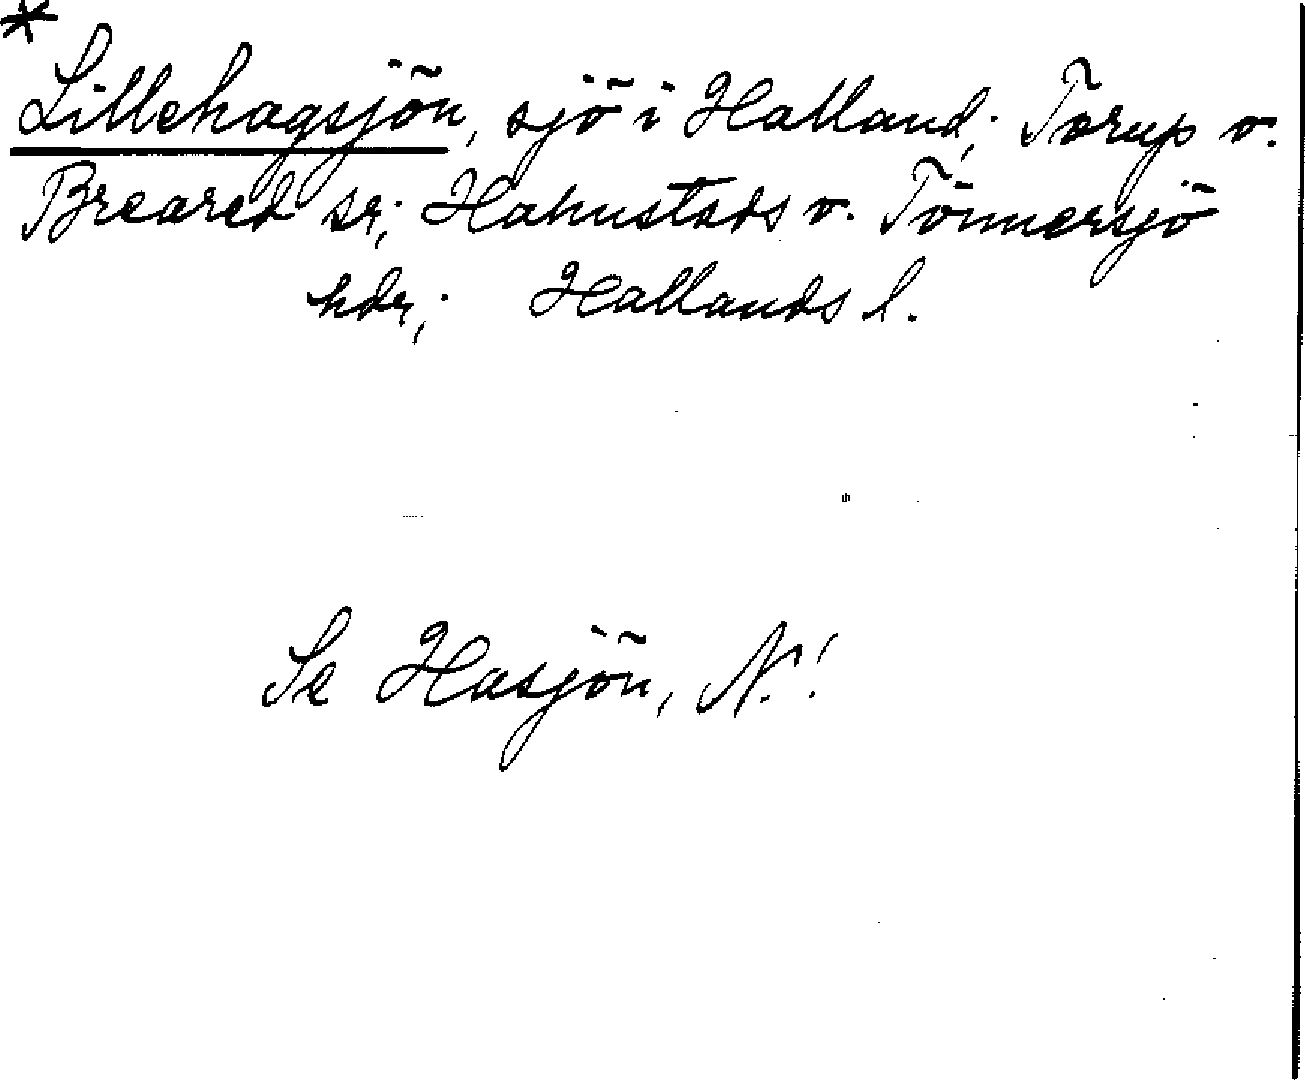 *
Lillehagsjön, sjö i Halland; Torup o.
Breared sr; Halmstads o. Tönnersjö
hdr; Hallands l.
Se Hasjön, N.!